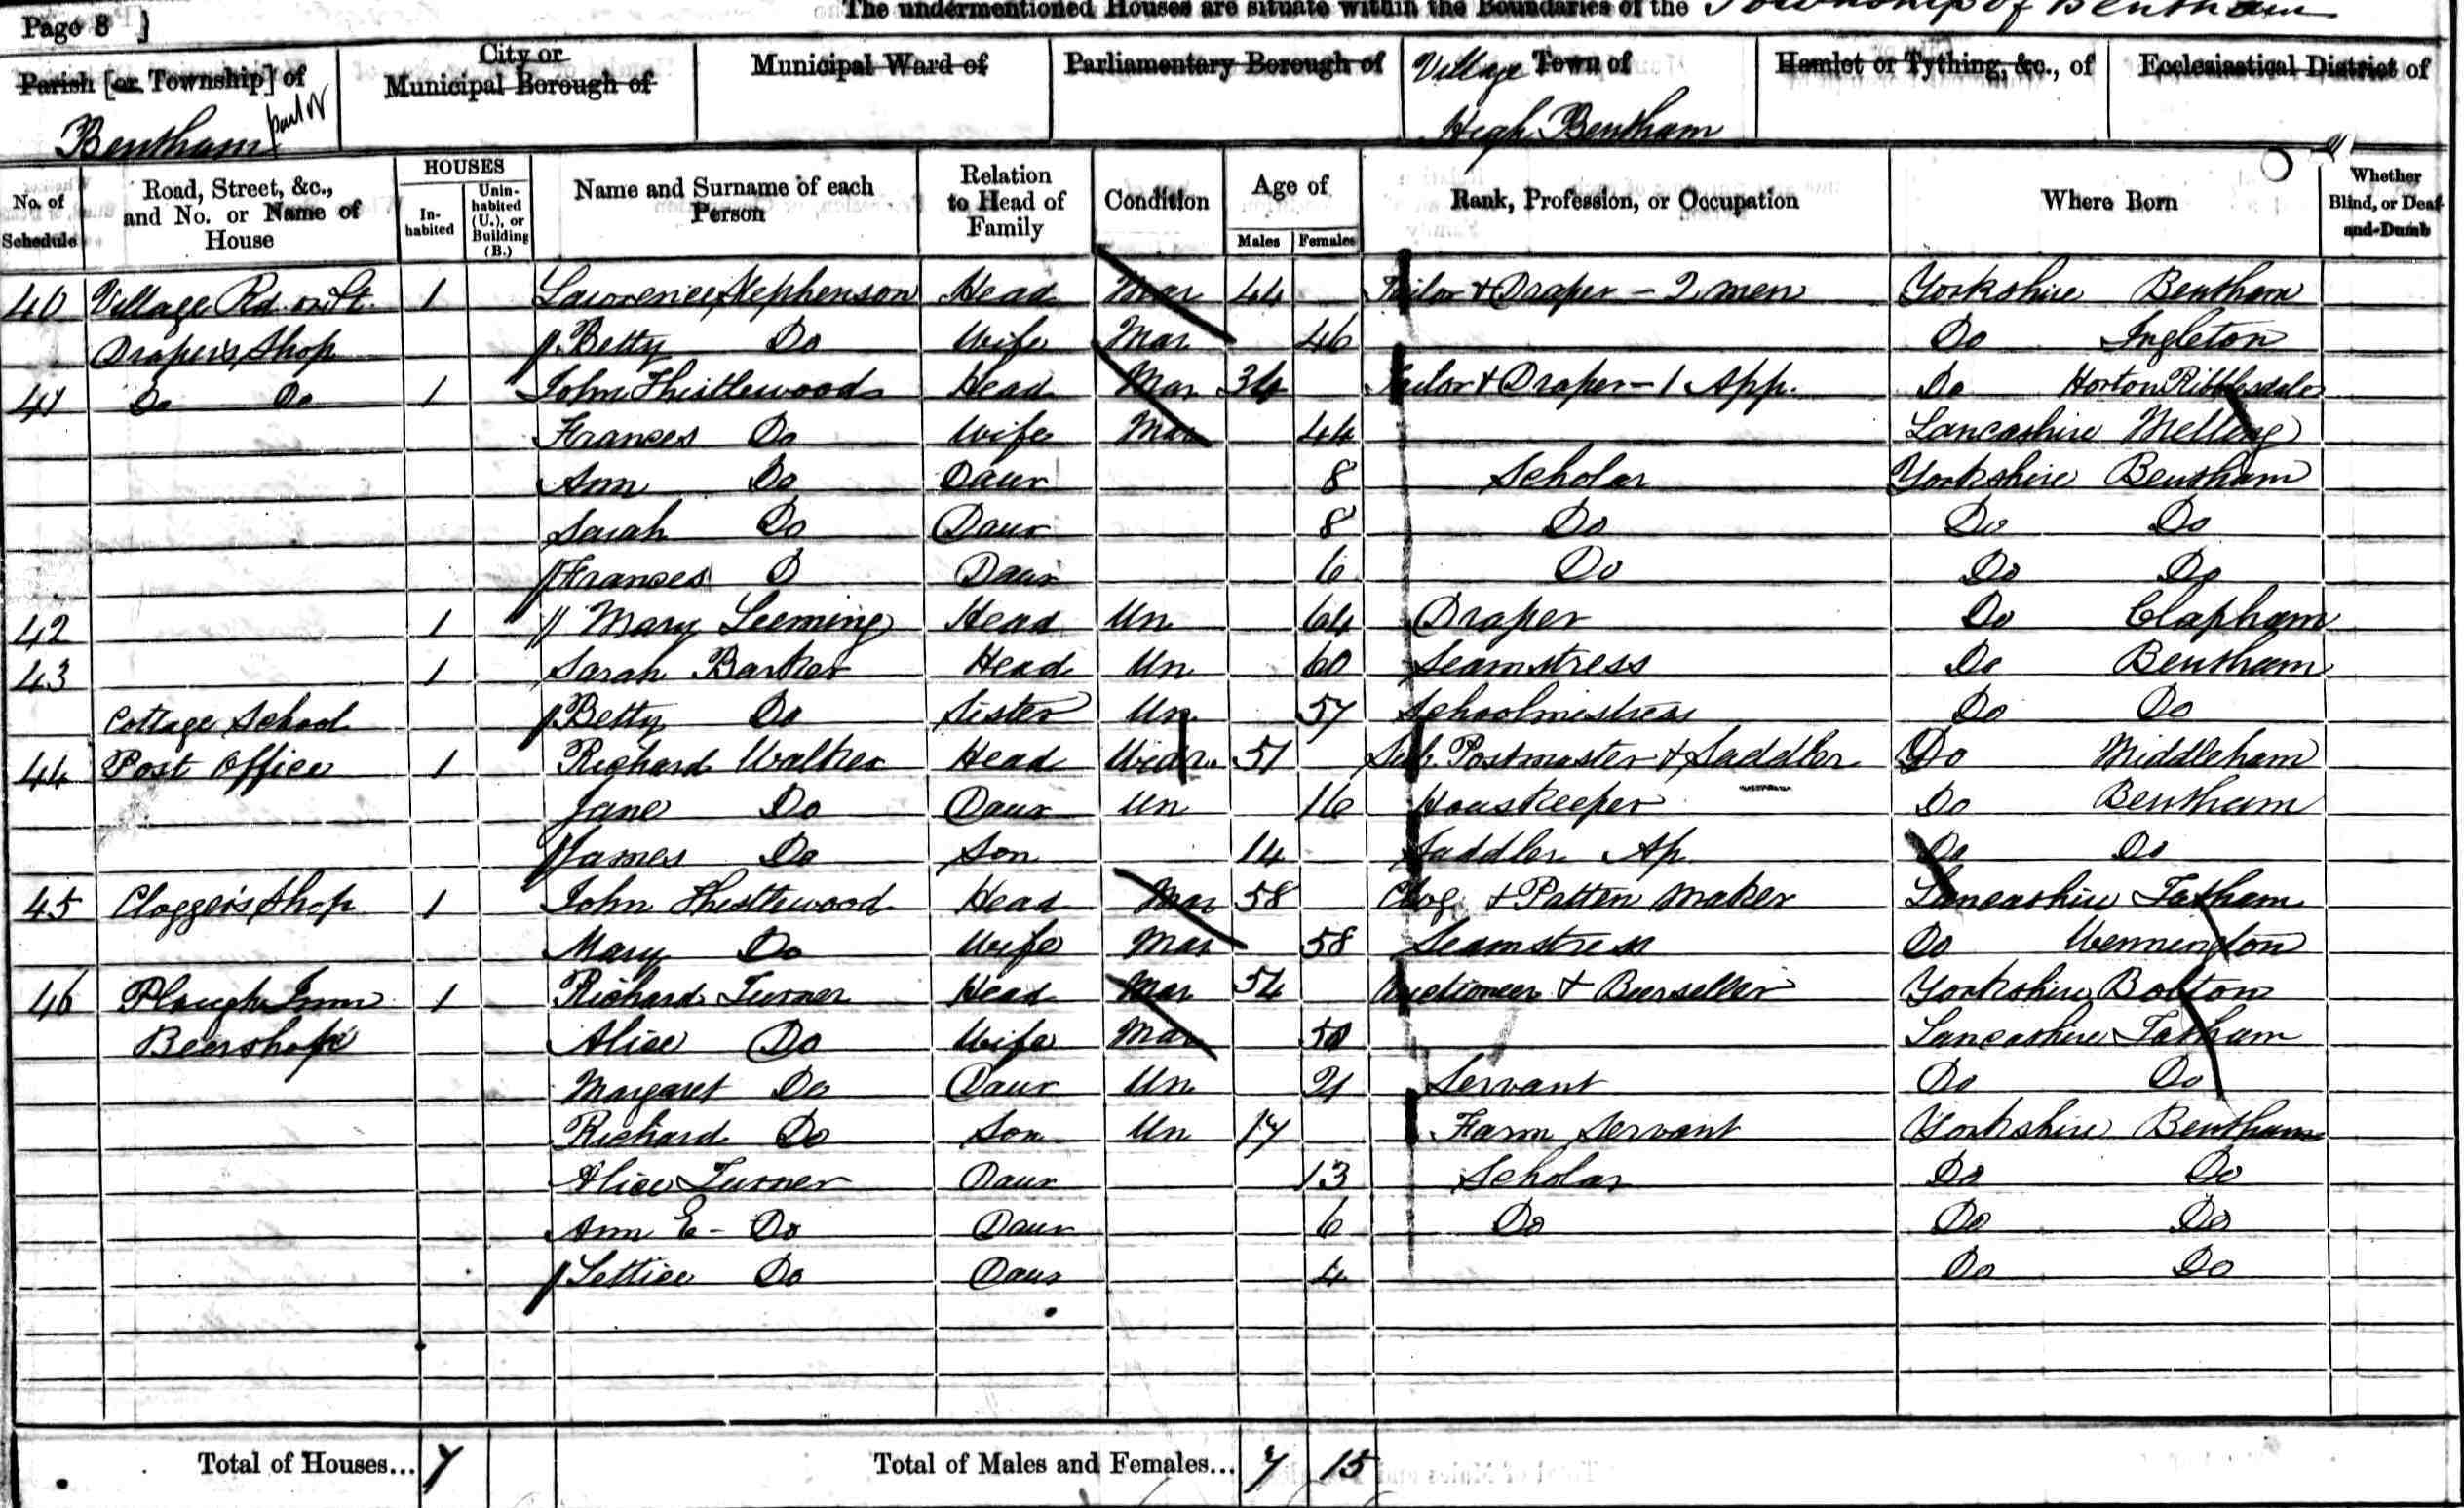 Page 8 ]
The undermentioned Houses are situate within the Boundaries of the Township of Bentham
Parish [or Township] of
City or Municipal Borough of
Municipal Ward of
Parliamentary Borough of
Village Town of
Hamlet or Tything, &c., of
Ecclesiastical District of
Bentham part of
High Bentham
No. of Schedule
Road, Street, &c., and No. or Name of House
HOUSES
In-habited
Unin-habited (U.), or Building (B.)
Name and Surname of each Person
Relation to Head of Family
Condition
Age of
Males
Females
Rank, Profession, or Occupation
Where Born
Whether Blind, or Deaf-and-Dumb
40 Village Rd or St. 1 Lawrence Stephenson Head Mar 44 Tailor & Draper - 2 men Yorkshire Bentham
Draper's Shop Betty Do Wife Mar 46 Do Ingleton
41 Do Do 1 John Thistlewood Head Mar 34 Tailor & Draper - 1 App. Do Horton Ribblesdale
Frances Do Wife Mar 44 Lancashire Melling
Ann Do Daur 8 Scholar Yorkshire Bentham
Sarah Do Daur 8 Do Do Do
Frances D Daur 6 Do Do Do
42 1 Mary Leeming Head Un 64 Draper Do Clapham
43 1 Sarah Barker Head Un 60 Seamstress Do Bentham
Cottage School Betty Do Sister Un 57 Schoolmistress Do Do
44 Post Office 1 Richard Walker Head Widr. 51 Sub Postmaster & Saddler Do Middleham
Jane Do Daur Un 16 Houskeeper Do Bentham
James Do Son 14 Saddler Ap Do Do
45 Clogger's Shop 1 John Thistlewood Head Mar 58 Clog & Patten Maker Lancashire Tatham
Mary Do Wife Mar 58 Seamstress Do Wennington
46 Plough Inn 1 Richard Turner Head Mar 54 Auctioneer & Beerseller Yorkshire Bolton
Beershop Alice Do Wife Mar 50 Lancashire Tatham
Margaret Do Daur Un 21 Servant Do Do
Richard Do Son Un 17 Farm Servant Yorkshire Bentham
Alice Turner Daur 13 Scholar Do Do
Ann E - Do Daur 6 Do Do Do
Lettice Do Daur 4 Do Do
Total of Houses... 7
Total of Males and Females... 7 15